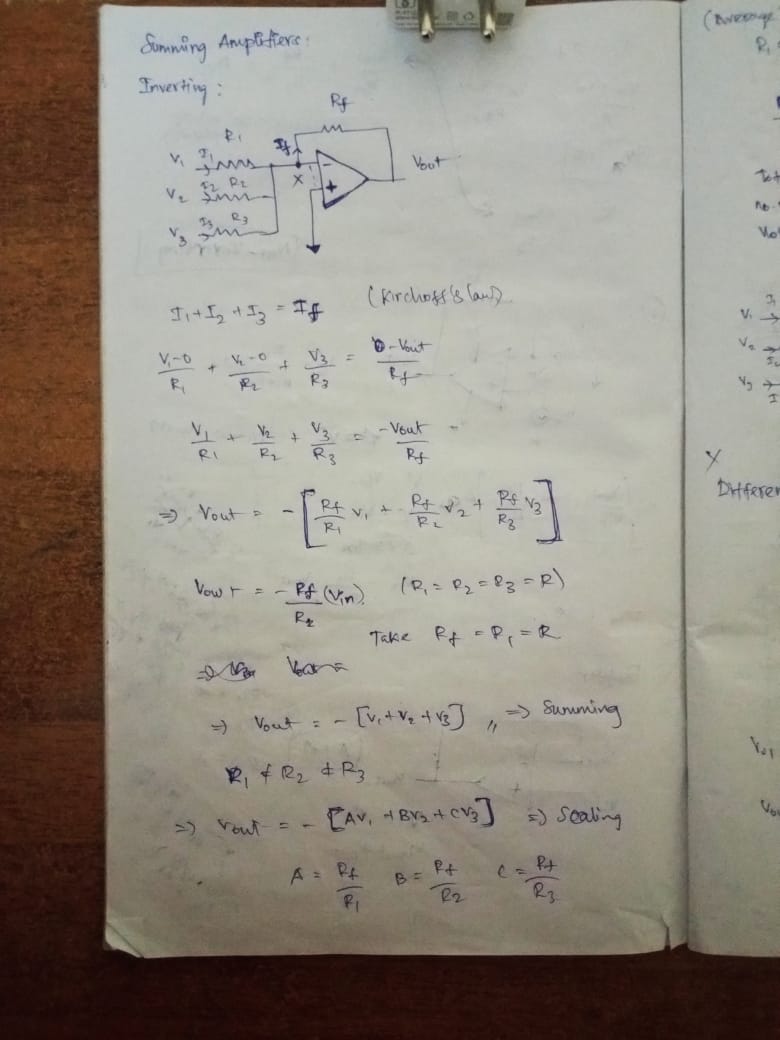 Summing Amplifiers:
Inverting:
Rf
R1
If
V1 I1
Vout
X
-
+
V2 I2 R2
V3 I3 R3
I1+I2+I3 = If (Kirchoff's law)
V1-0/R1 + V2-0/R2 + V3/R3 = 0-Vout/Rf
V1/R1 + V2/R2 + V3/R3 = -Vout/Rf
=> Vout = -[Rf/R1 V1 + Rf/R2 V2 + Rf/R3 V3]
Vout = -Rf/R1 (Vin) (R1 = R2 = R3 = R)
Take Rf = R1 = R
=> Vout = -[V1+V2+V3] ,, => Summing
R1 ≠ R2 ≠ R3
=> Vout = -[AV1 + BV2 + CV3] => Scaling
A = Rf/R1 B = Rf/R2 C = Rf/R3
(Average
R1
V1
V2
V3
X
Differen